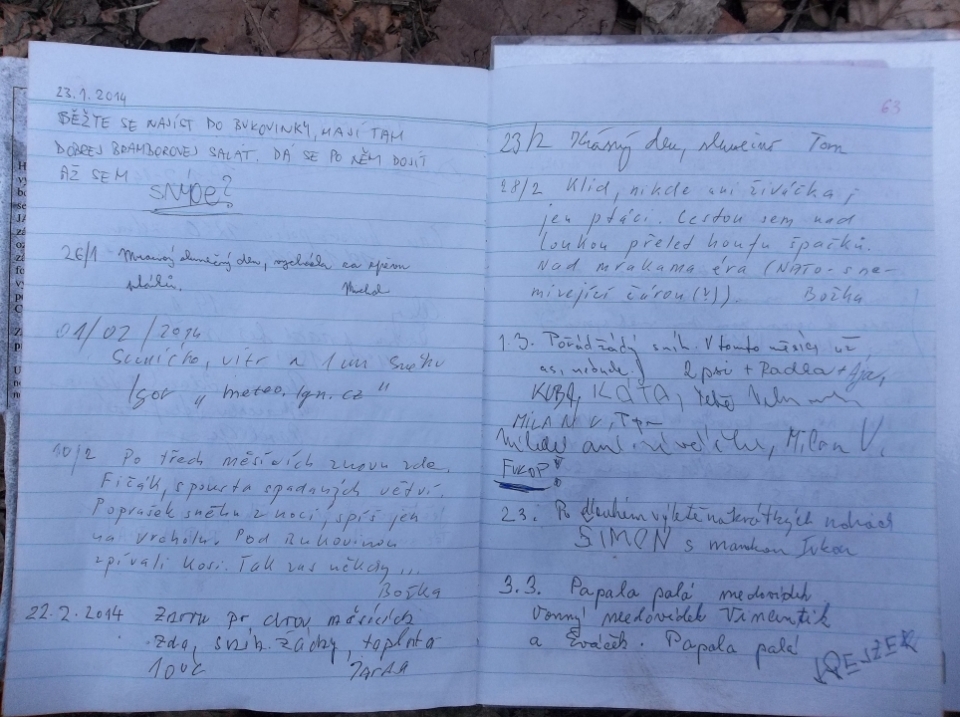 23.1.2014
BĚŽTE SE NAJÍST DO BUKOVINKY, MAJÍ TAM
DOBREJ BRAMBOROVEJ SALÁT. DÁ SE PO NĚM DOJÍT
AŽ SEM
26/1 Mrazivý slunečný den,
01/02/2014
Sluníčko, vítr a 1 cm sněhu
Igor "meteo.lgn.cz"
10/2 Po třech měsících znovu zde.
Fičák, spousta spadaných větví.
Poprašek sněhu z noci, spíš jen
na vrcholu. Pod Bukovinou
zpívali kosi. Tak zas někdy...
Boška
22.2.2014 Znovu po dvou měsících
zde, sníh žádný, teplota
10°C Jarda
63
23/2 Krásný den, slunečno Tom
28/2 Klid, nikde ani živáčka,
jen ptáci. Cestou sem nad
loukou přelet houfu špačků.
Nad mrakama éra (NATO - s ne-
mizející čárou (?)). Boška
1.3. Pořád žádný sníh. V tomto měsíci už
asi nebude. 2 psi + Radka +
KUBA, KÁTA,
MILAN V.
ani Milan V.
2.3. Po dlouhém výletě na krátkých nohách
ŠIMON s mamkou
3.3. Papala palá medovídek
Vonný medovídek Vincentík
a Eváček. Papala palá